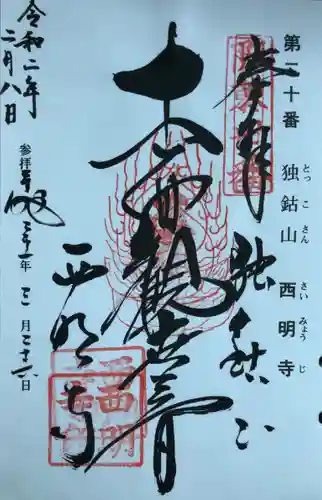 第二十番 独鈷山 西明寺
とっこさん さいみょうじ
奉拝
独鈷山
十一面観世音
西明寺
令和二年
二月八日
参拝平成三十一年三月二十六日